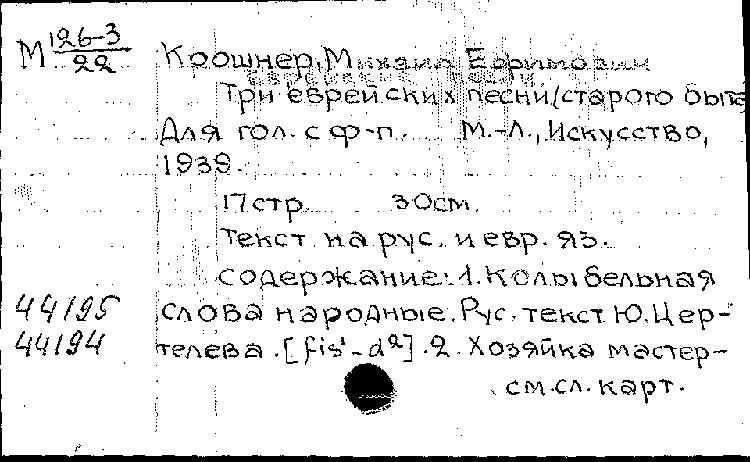 М 126-3/22
Крошнер, Михаил Ефимович
Три еврейских песни/старого быта
Для гол. с ф-п. М.-Л., Искусство,
1939.
17 стр. 30см.
Текст на рус. и евр. яз.
содержание: 1. Колыбельная
44195 слова народные. Рус. текст Ю. Цер-
44194 телева. [fis¹-d²]. 2. Хозяйка мастер-
см. сл. карт.